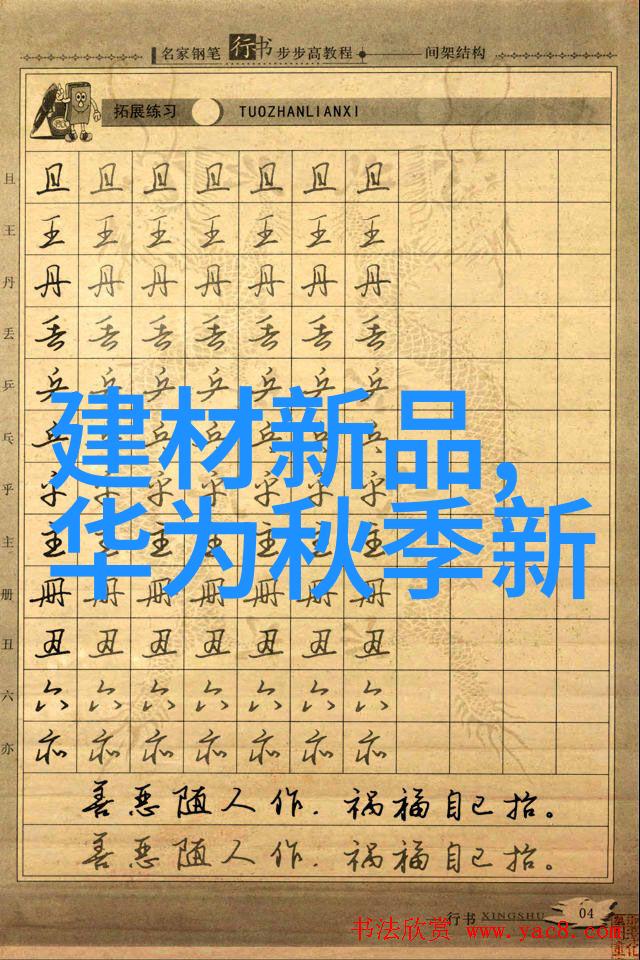 名家钢笔行书步步高教程 间架结构
拓展练习 TUOZHANLIANXI
且 且 且 且 且 且 且 且
王 王 王 王 王 王 王 王
丹 丹 丹 丹 丹 丹 丹 丹
丢 丢 丢 丢 丢 丢 丢 丢
乒 乒 乒 乒 乒 乒 乒 乒
建材新品,
乓 乓 乓 乓 乓 乓 乓 乓
乎 乎 乎 乎 乎 乎 乎 乎
华为秋季新
主 主 主 主 主 主 主 主
册 册 册 册 册 册 册 册
丑 丑 丑 丑 丑 丑 丑 丑
六 六 六 六 六 六 六 六
亦 亦 亦 亦 亦 亦 亦 亦
善恶随人作.祸福自己招。
善恶随人作.祸福自己招。
行书 XINGSHU 04
书法欣赏 www.yac8.com